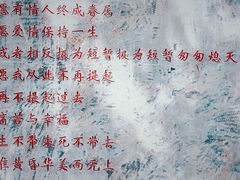 愿有情人终成眷属
愿爱情保持一生
或者相反极为短暂极为短暂匆匆熄灭
愿我从此不再提起
再不提起过去
痛苦与幸福
生不带来死不带去
唯黄昏华美而无上